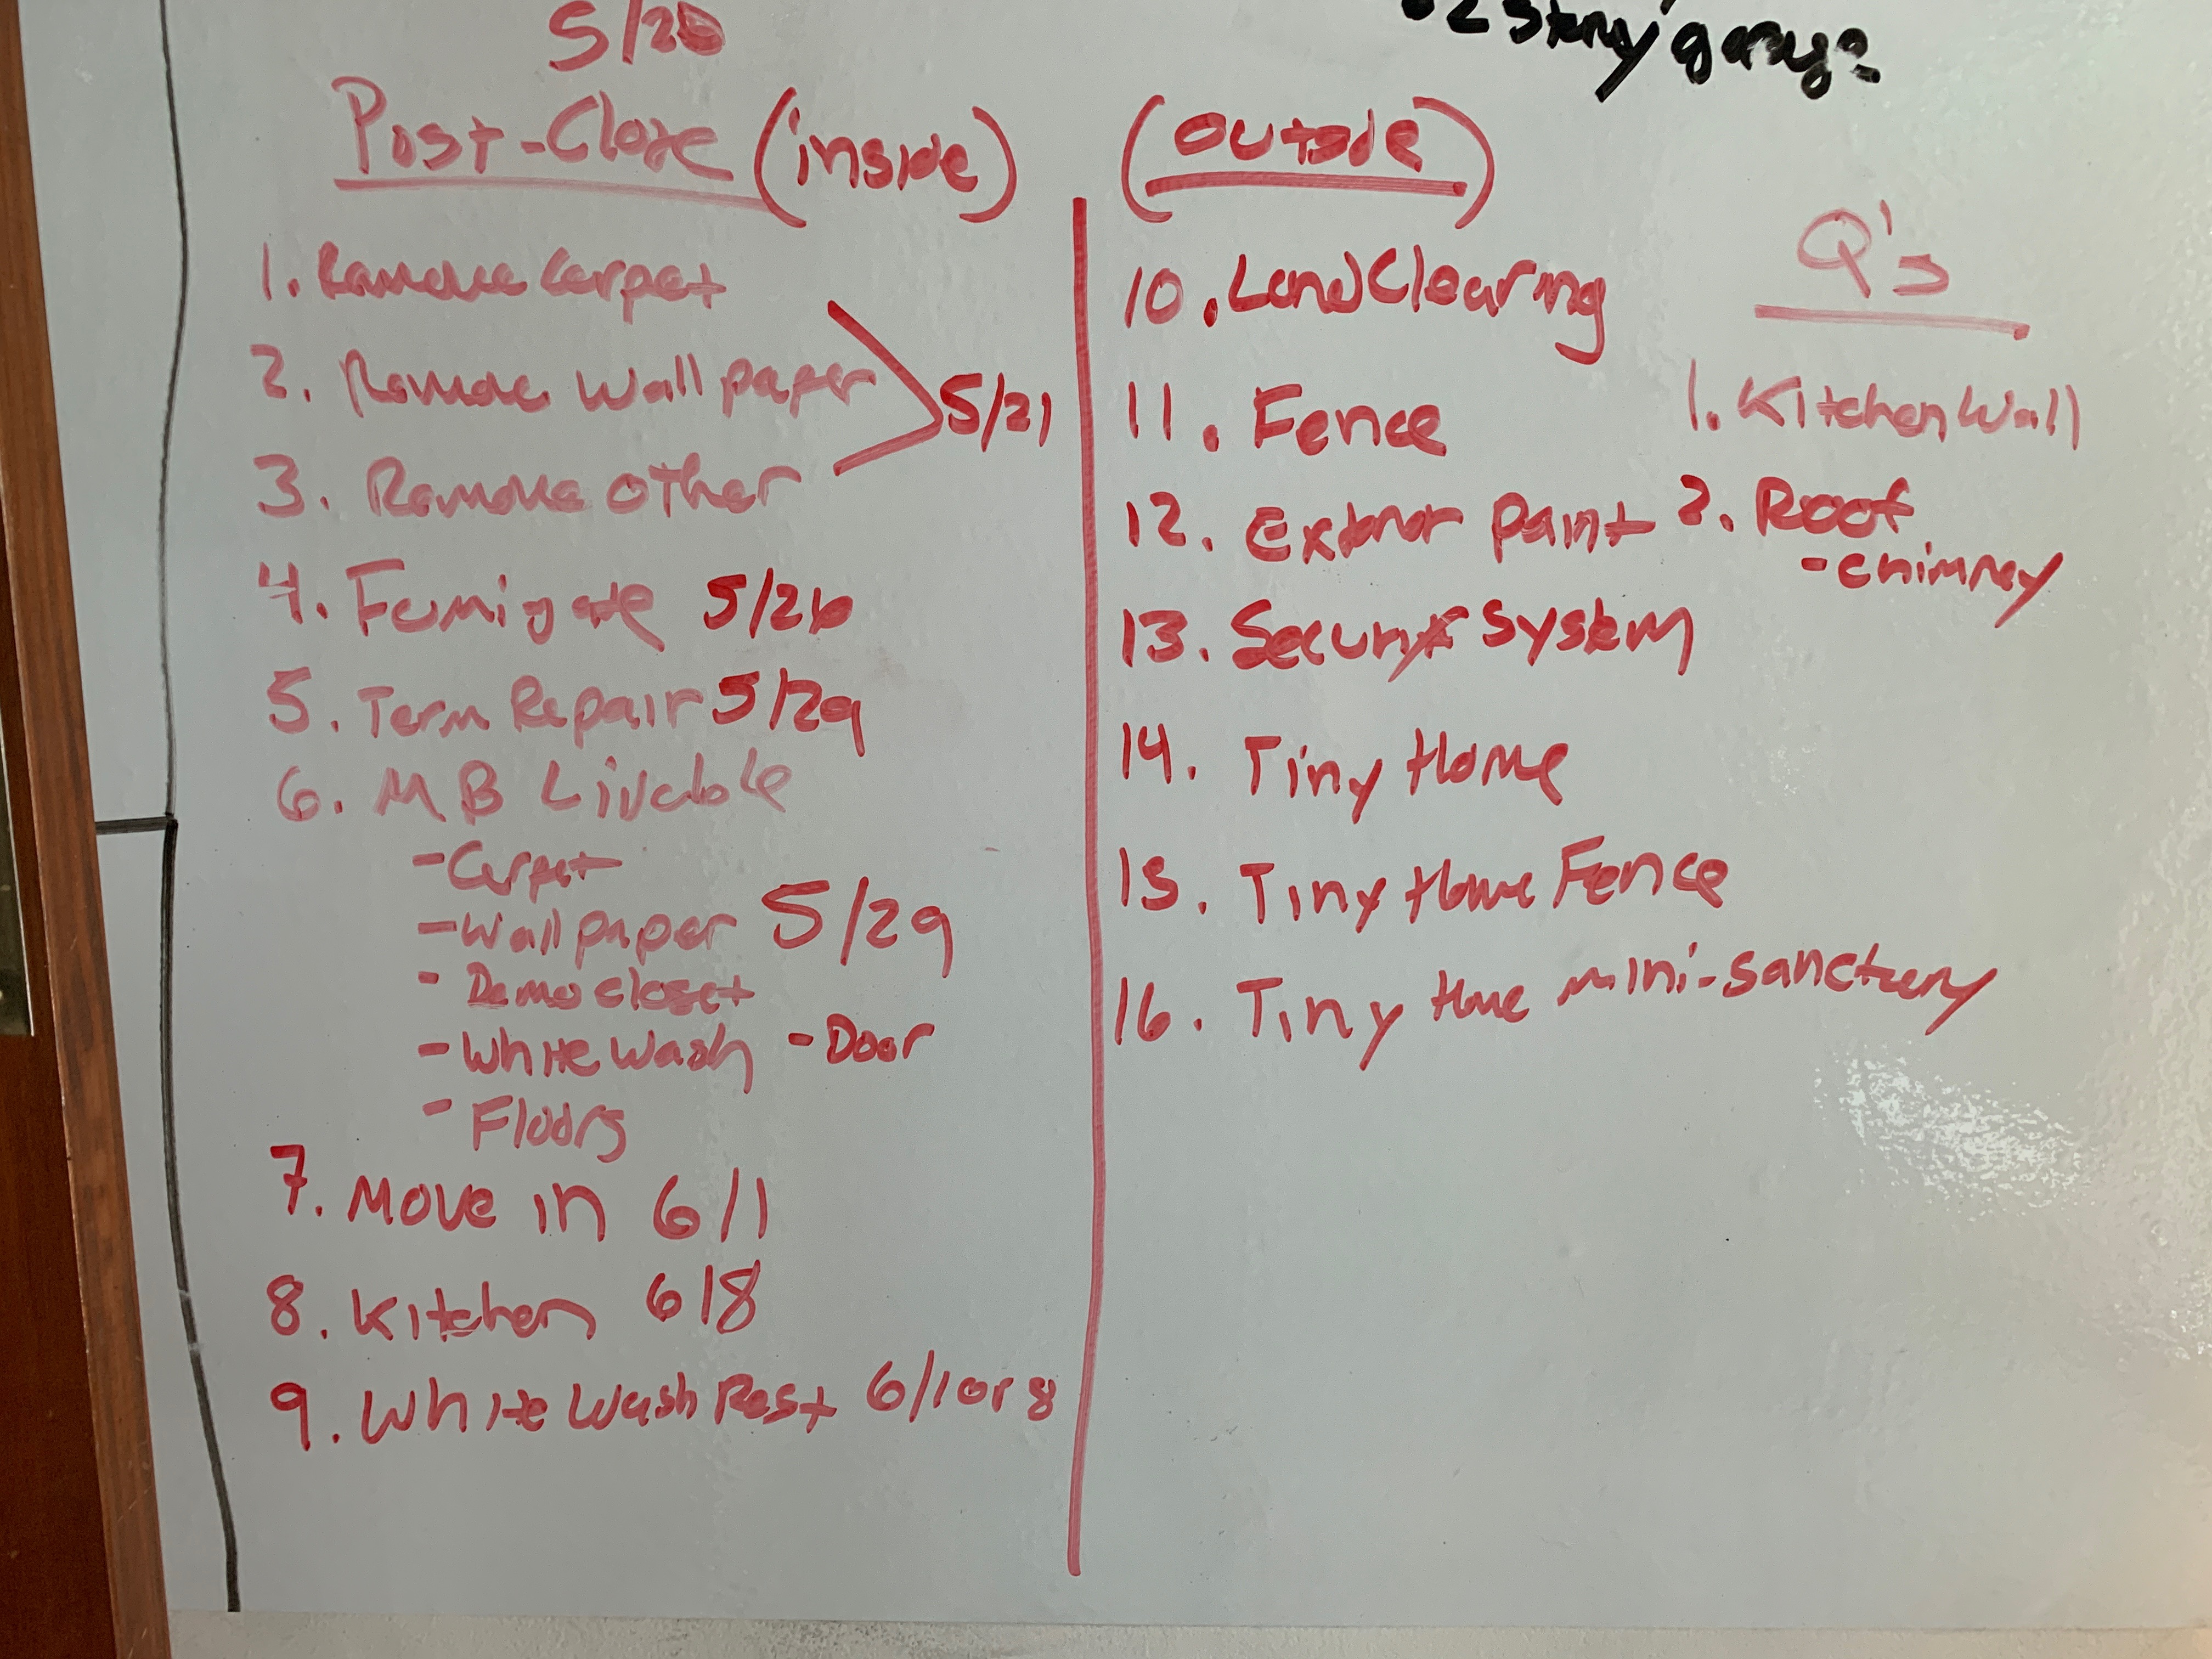 5/20
2 story garage
Post-Close (inside)
1. Remove Carpet
2. Remove Wallpaper
3. Remove other
5/21
4. Fumigate 5/26
5. Term Repair 5/29
6. MB Livable
- Carpet
- Wallpaper 5/29
- Demo closet
- White Wash - Door
- Floors
7. Move in 6/1
8. Kitchen 6/8
9. White Wash Rest 6/1 or 8
(outside)
10. Land Clearing
11. Fence
12. Exterior paint
13. Security System
14. Tiny Home
15. Tiny Home Fence
16. Tiny Home mini-sanctuary
Q's
1. Kitchen Wall
2. Roof
- chimney